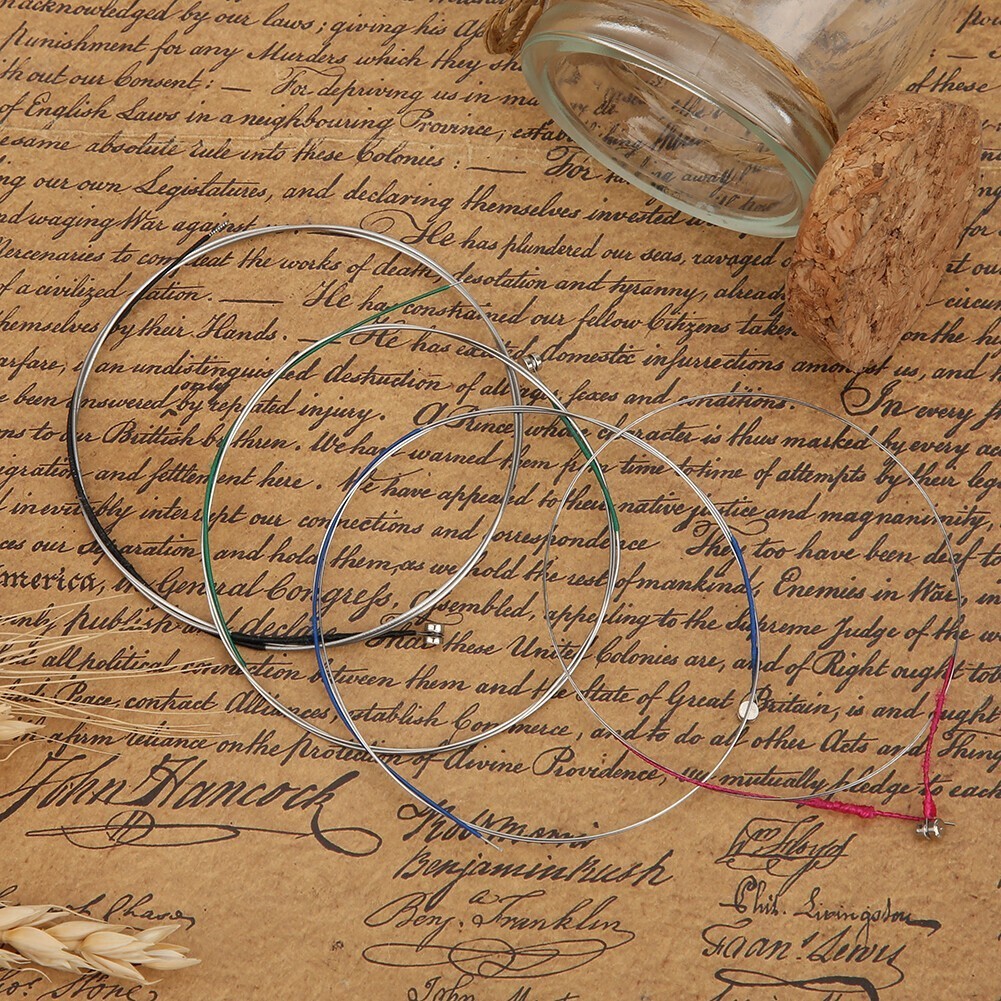 acknowledged by our laws; giving his As
Punishment for any Murders which they sh
thout our Consent: — For depriving us in ma
of English Laws in a neighbouring Province, estab of these
same absolute rule into these Colonies: — For ta king away
ng our own Legislatures, and declaring themselves invested
nd waging War against He has plundered our seas, ravaged
ercenaries to compleat the works of death desolation and tyranny, already circum
f a civilized nation. — He has constrained our fellow Citizens taken on the
hemselves by their Hands. — He has excited domestic insurrections amongst us, and
arfare, is an undistinguished destruction of all ages, sexes and conditions. In every
only
been answered by repeated injury. A Prince whose character is thus marked by every
ns to our Brittish brethren. We have warned them from time to time of attempts by their leg
igration and settlement here. We have appealed to their native justice and magnanimity,
d inevitably interrupt our connections and correspondence They too have been deaf to
ces our Separation and hold them, as we hold the rest of mankind, Enemies in War, in
merica, in General Congress, Assembled, appealing to the Supreme Judge of the
nly publish and declare That these United Colonies are, and of Right ought to
t all political connection between them and the State of Great Britain, is and ought
Peace, contract Alliances, establish Commerce, and to do all other Acts and Thing
a firm reliance on the Protection of Divine Providence, we mutually pledge to each
John Hancock
Robt Morris Wm Floyd
Benjamin Rush
Phil. Livingston
Chase Benj. Franklin
Fran! Lewis
Stone John Morton